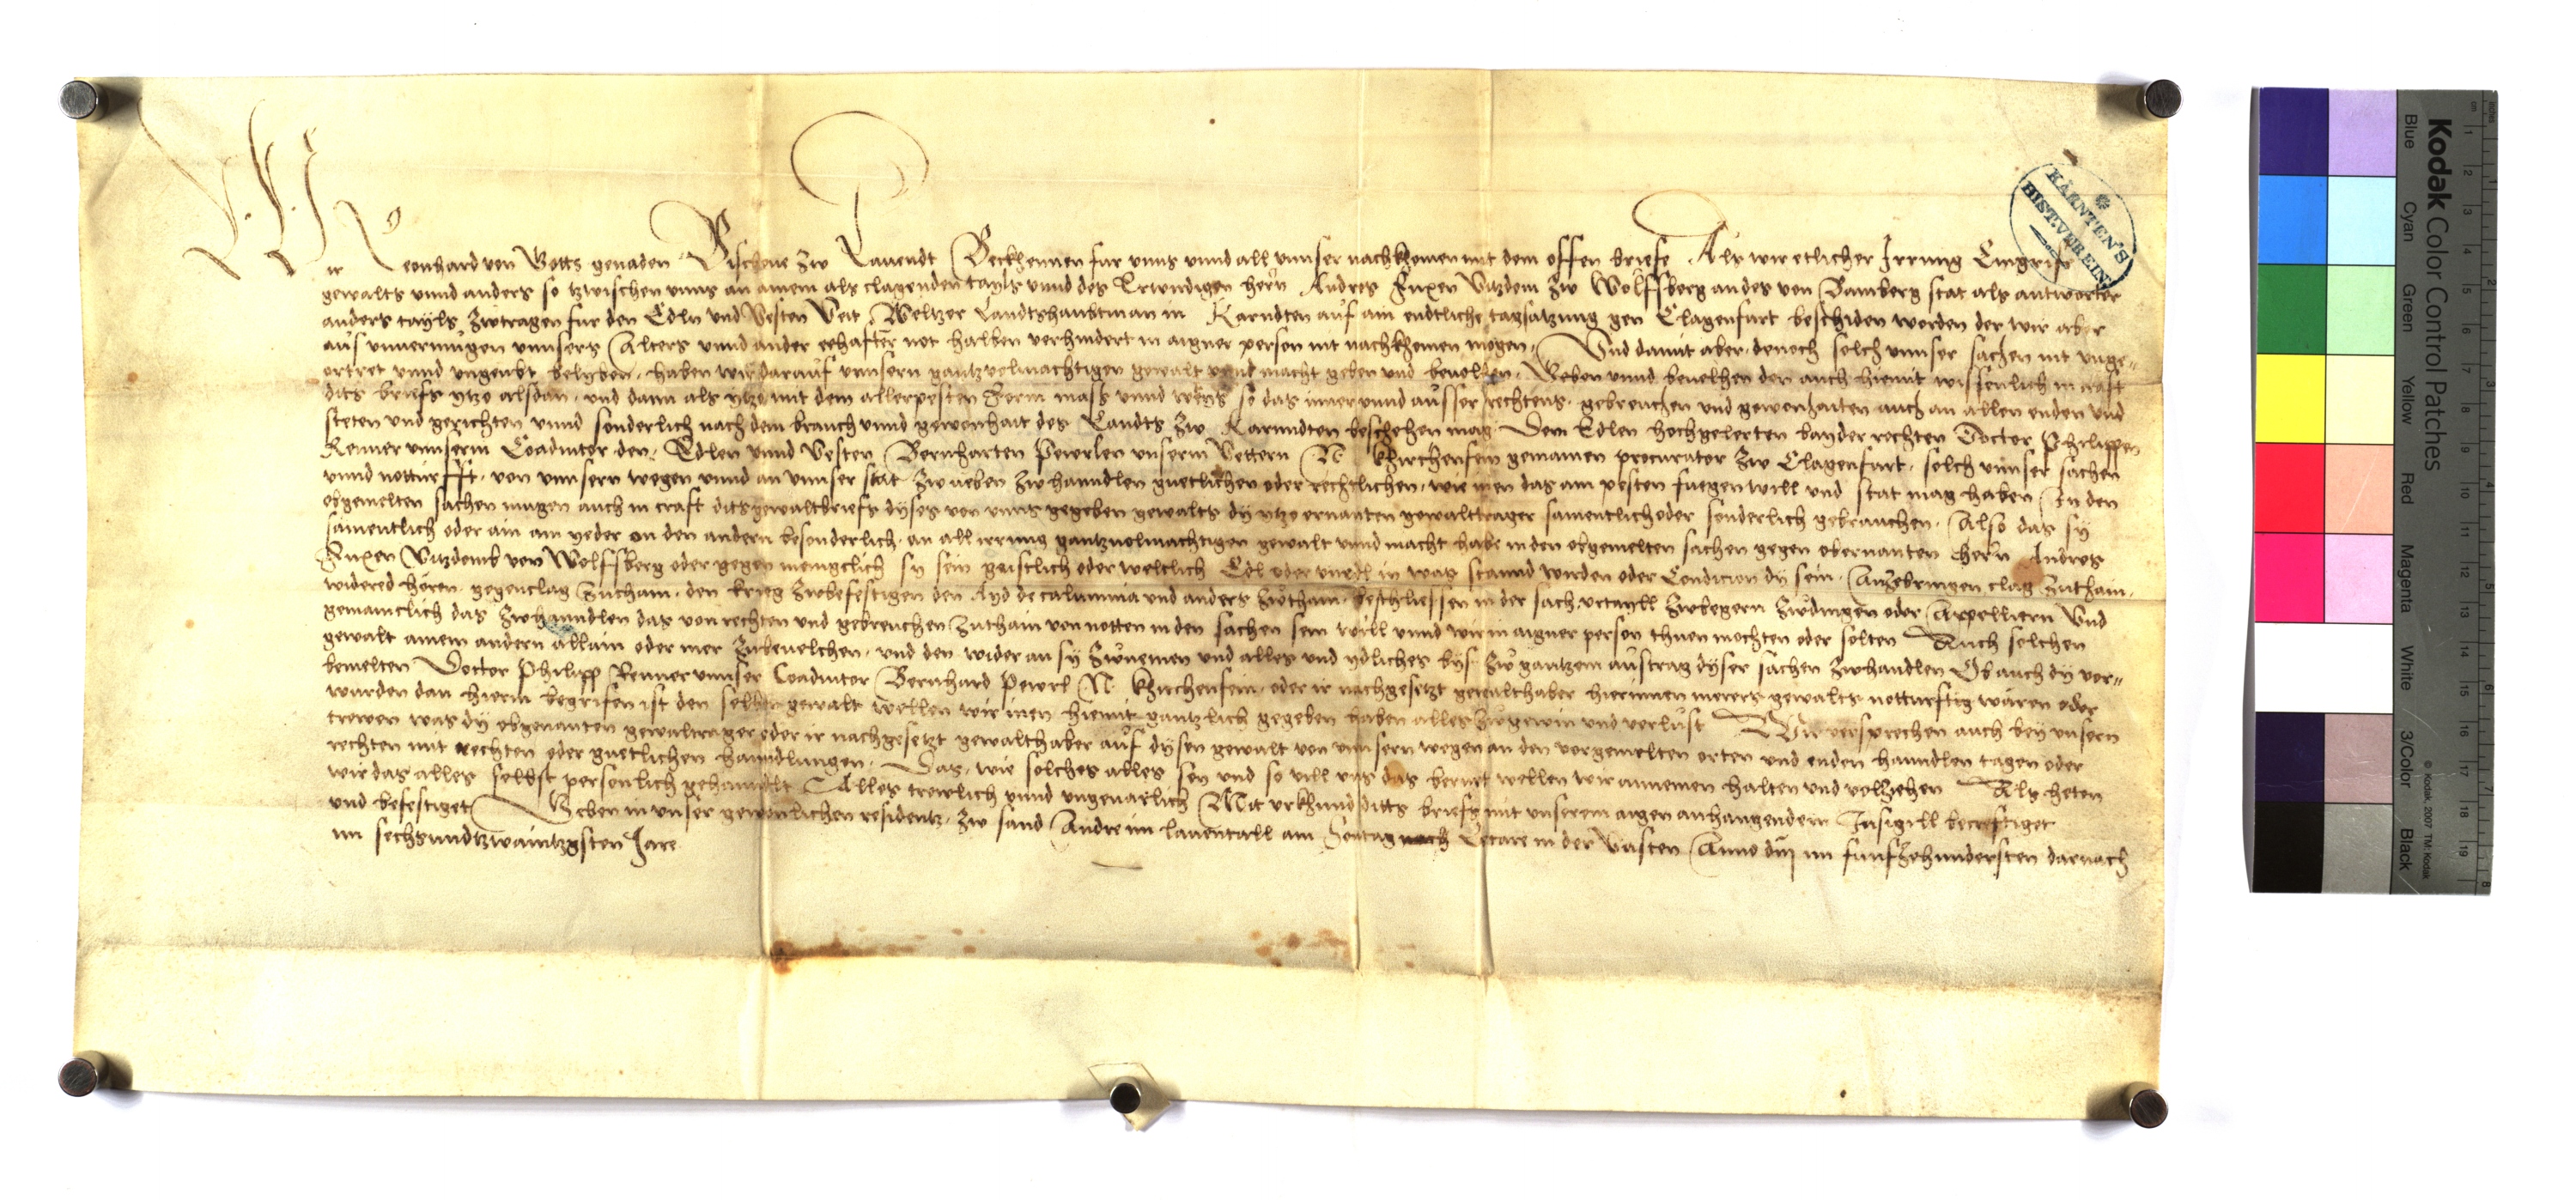 Wir Leonhard von Gotts genaden Bischoue zw Lauendt Beckhennen fur vnns vnnd all vnnser nachkhomen mit dem offen briefe Als wir etlicher Irrung Eingriff
gewalts vnnd anders so tzwischen vnns an ainem als clagenden tayls vnnd des Erwirdigen herrn Andres Fuxen Vitzdom zw Wolfsberg an des von Bamberg stat als antworter
anders tayls zwtragen fur den Edln vnd Vesten Veit Weltzer Landtshaubtman in Karndten auf ain endtliche tagsatzung gen Clagenfurt beschiden worden der wir aber
aus vnuermugen vnnsers Alters vnnd ander eehafter not halben verhindert in aigner person nit nachkhomen mogen. Vnd damit aber dennoch solch vnnser sachen nit vnge-
ortret vnnd vngeubt belyben. haben wir darauf vnnsern gantz volmachtigen gewalt vnnd macht geben vnd beuolhen. Geben vnnd beuelhen den auch hiemit wissenlich in craft
dits briefs ytzo alsdan, vnd dann als ytzo mit dem allerpesten Form mass vnnd weys so das inner vnnd ausser rechtens. gebreuchen vnd gewonhaiten auch an allen enden vnd
steten vnd gerichten vnnd sonderlich nach dem brauch vnnd gewonhait des Landts zw Karnndten beschehen mag. Dem Edlen hochgelerten bayder rechten Doctor Philippen
Renner vnnserm Coadiutor den Edlen vnnd Vesten Bernharten Peierlen vnserm Vettern N khirchenfein gemainen procurator zw Clagenfurt. solch vnnser sachen
vnnd notturfft. von vnnsern wegen vnnd an vnnser stat zw ueben zw hanndlen guetlichen oder rechtlichen. wie inen das am pesten fuegen will vnd stat mag haben In den
obgemelten sachen mugen auch in craft dits gewaltbriefs dyses von vnns gegeben gewalts dy ytzo ernanten gewalttrager samentlich oder sonderlich gebrauchen. Also das sy
samentlich oder ain am yeder on den andern besonderlich. an all irrung gantz volmachtigen gewalt vnnd macht habe in den obgemelten sachen gegen obernanten herrn Andres
Fuxen Vitzdomb von Wolfsberg oder gegen menigclich sy sein gaistlich oder weltlich Edl oder vnedl in was stannd wirden oder Condicion dy sein. Anzebringen clag zuthain.
widered horen. gegenclag zuthain. den krieg zwbefestigen den Ayd de calumnia vnd anders zwthain. beschliessen in der sach. vrtayll zwbegern zwdingen oder Appelliern Vnd
gemainclich das zwhanndlen das von rechten vnd gebreuchen zuthain von notten in den sachen sein will vnnd wir in aigner person thuen mochten oder solten Auch solchen
gewalt ainem andern allain oder mer zubeuelchen. vnd den wider an sy zwnemen vnd alles vnd ydliches bys zw gantzem austrag dyser sachen zwhandlen Ob auch dy vor-
bemelten Doctor Philipp Renner vnnser Coadiutor Bernhard Peierl N khirchenfein. oder ir nachgesetzt gewalthaber hierinnen merers gewalts notturftig wären oder
wurden dan hierin begrifen ist den selben gewalt wellen wir inen hiemit gantzlich gegeben haben alles zwgewin vnd verlust Wir versprechen auch bey vnsern
trewen was dy obgenanten gewaltrager oder ir nachgesetzt gewalthaber auf dysen gewalt von vnnsern wegen an den vorgemelten orten vnd enden hanndlen tagen oder
rechten mit rechten oder guetlichen hanndlungen. Das. wie solches alles sey vnd so vill vns das berurt wellen wir annemen halten vnd volziehen Als heten
wir das alles selbst personlich gehanndlt Alles trewlich vnnd vngeuarlich Mit vrkhund ditts briefs mit vnserem aigen anhangendem Insigill becreftiget
vnd befestiget Geben in vnser gewonlichen residentz. zw sand Andre im lauentall am Sontag nach Letare in der Vasten Anno dni im funfzehundersten darnach
im sechsundtzwaintzgsten Jare
KÄRNTEN'S
HIST. VEREIN
Kodak Color Control Patches
Blue Cyan Green Yellow Red Magenta White 3/Color Black
© Kodak, 2007 TM: Kodak
inches 1 2 3 4 5 6 7 8
cm 1 2 3 4 5 6 7 8 9 10 11 12 13 14 15 16 17 18 19